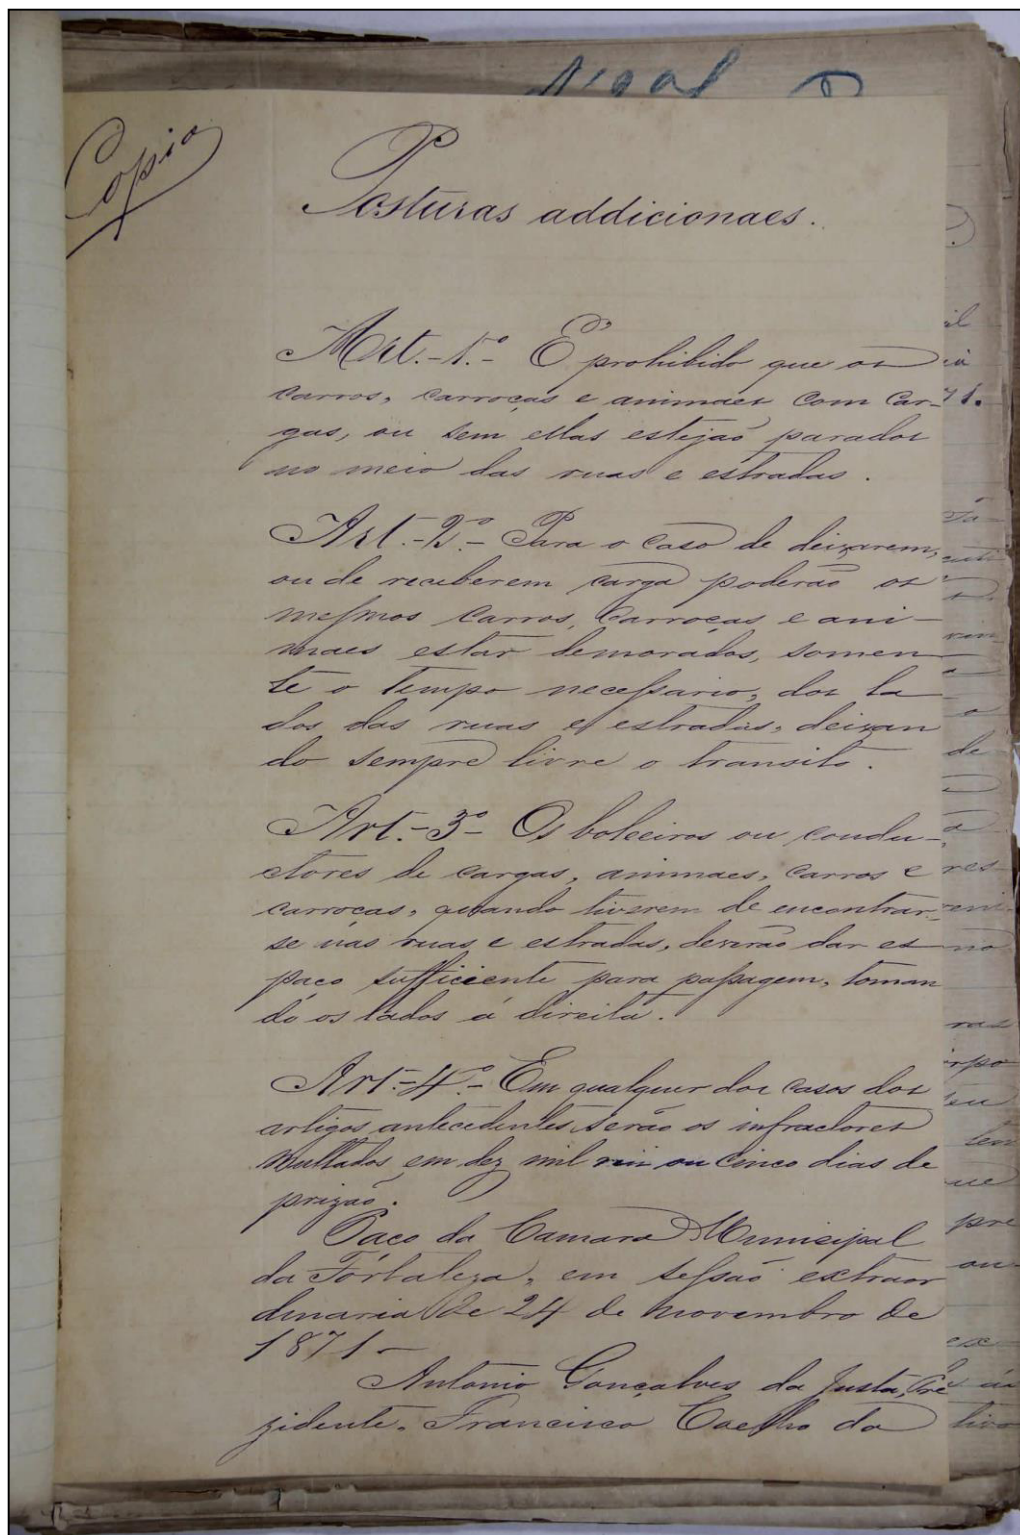 Copia
Posturas addicionaes.
Art. - 1.º - É prohibido que os
carros, carroças e animaes com car-
gas, ou sem ellas estejão parados
no meio das ruas e estradas.
Art. - 2.º - Para o caso de deixarem,
ou de receberem carga poderão os
mesmos carros, carroças e ani-
maes estar demorados, somen
te o tempo necessario, dos la
dos das ruas e estradas, deixan
do sempre livre o transito.
Art. - 3.º - Os boleeiros ou condu-
ctores de cargas, animaes, carros e
carroças, quando tiverem de encontrar-
se nas ruas e estradas, deverão dar es
paço sufficiente para passagem, toman
do os lados á direita.
Art. - 4.º - Em qualquer dos casos dos
artigos antecedentes serão os infractores
multados em dez mil reis ou cinco dias de
prizão.
Paço da Camara Municipal
da Fortaleza, em sessão extraor
dinaria de 24 de novembro de
1871 -
Antonio Gonçalves da Justa, Pre
zidente. Francisco Coelho da